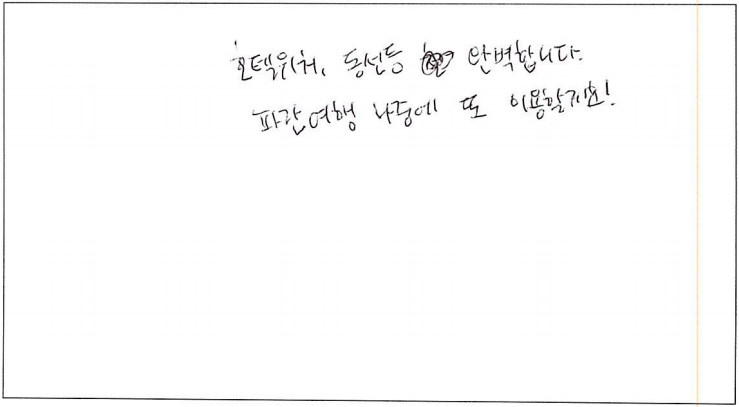 호텔위치, 동선등 완벽합니다.
파란여행 나중에 또 이용할게요!